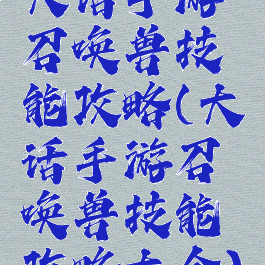 大话手游
召唤兽技
能攻略(大
话手游召
唤兽技能
攻略大全)